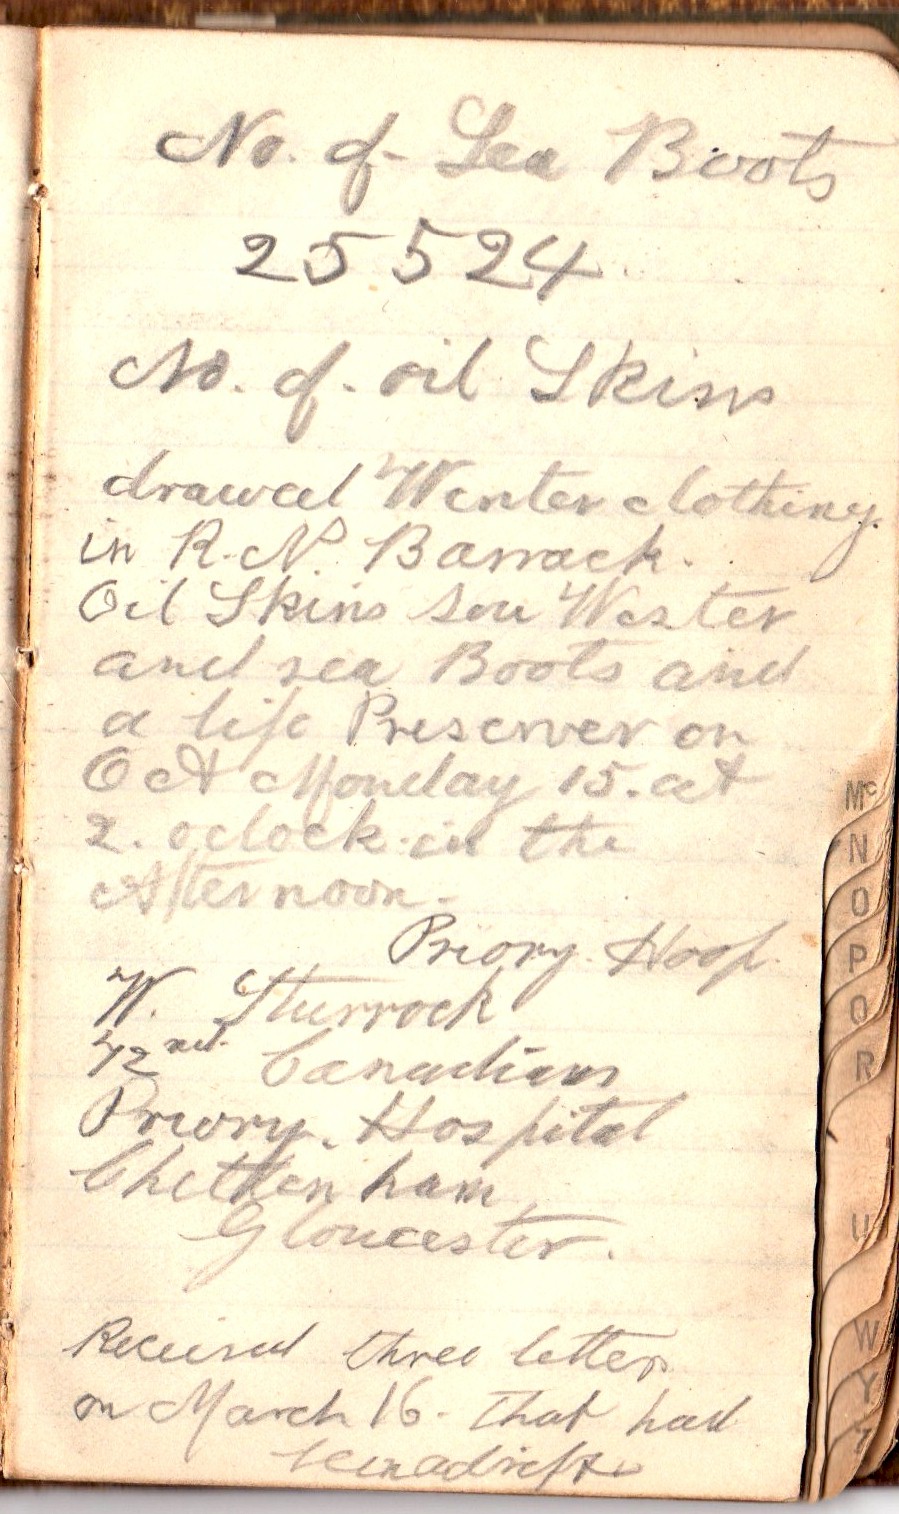 No. of Sea Boots
25524
No. of oil Skins
drawed Winter clothing
in R.N. Barrack.
Oil Skins Sou Wester
and sea Boots and
a life Preserver on
Oct Monday 15. at
2. oclock in the
Afternoon.
Priory. Hosp.
W. Sturrock
42nd Canadian
Priory. Hospital
Cheltenham
Gloucester.
Received three letters
on March 16. that had
Mc
N
O
P
Q
R
U
W
Y